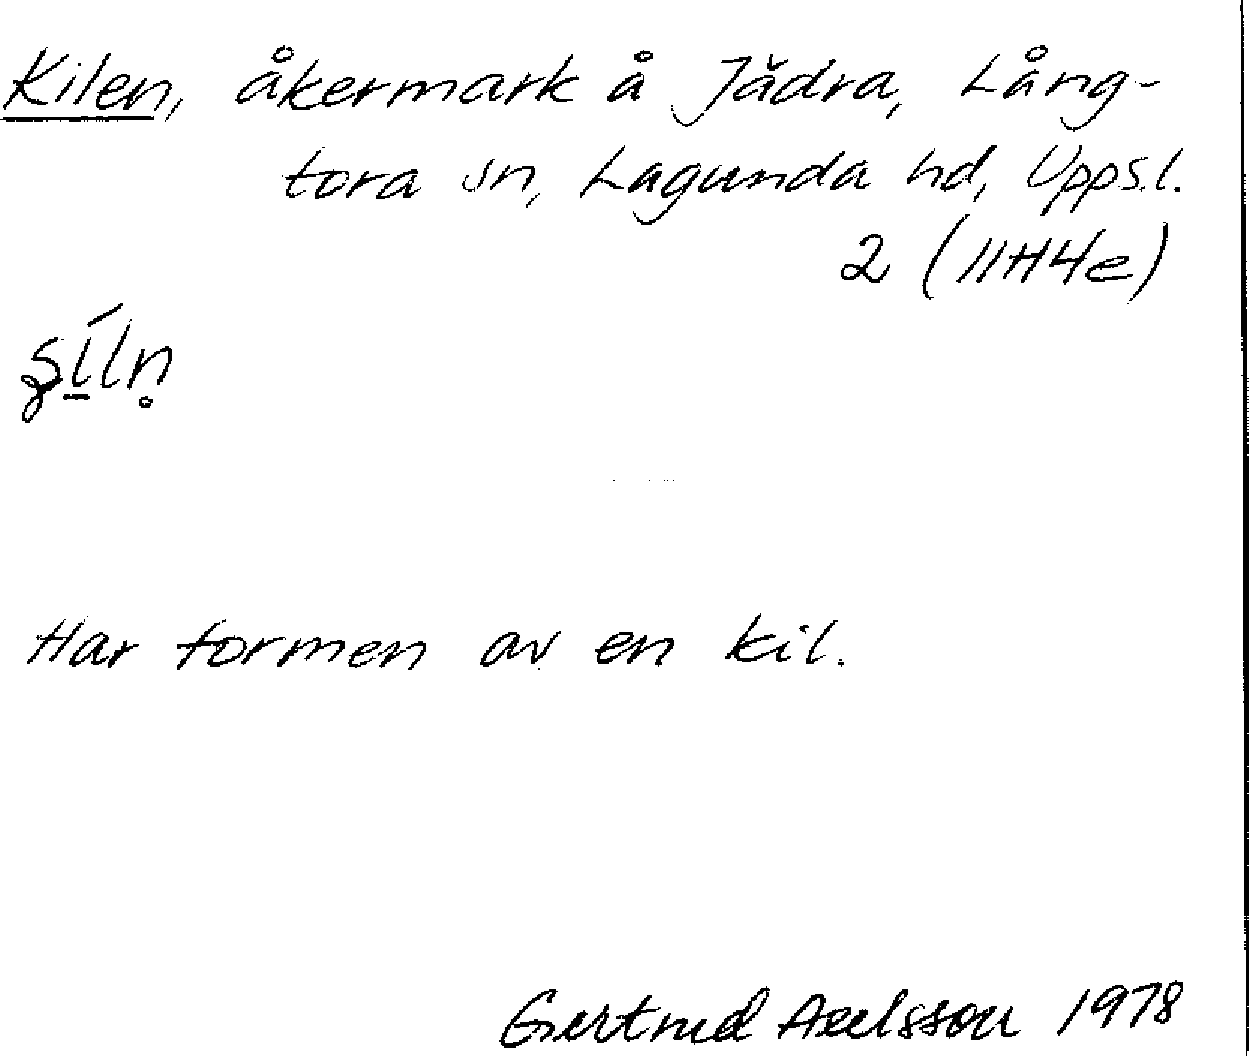 Kilen, åkermark å Jädra, Lång-
tora sn, Lagunda hd, Uppsl.
2 (11H4e)
Har formen av en kil.
Gertrud Axelsson 1978